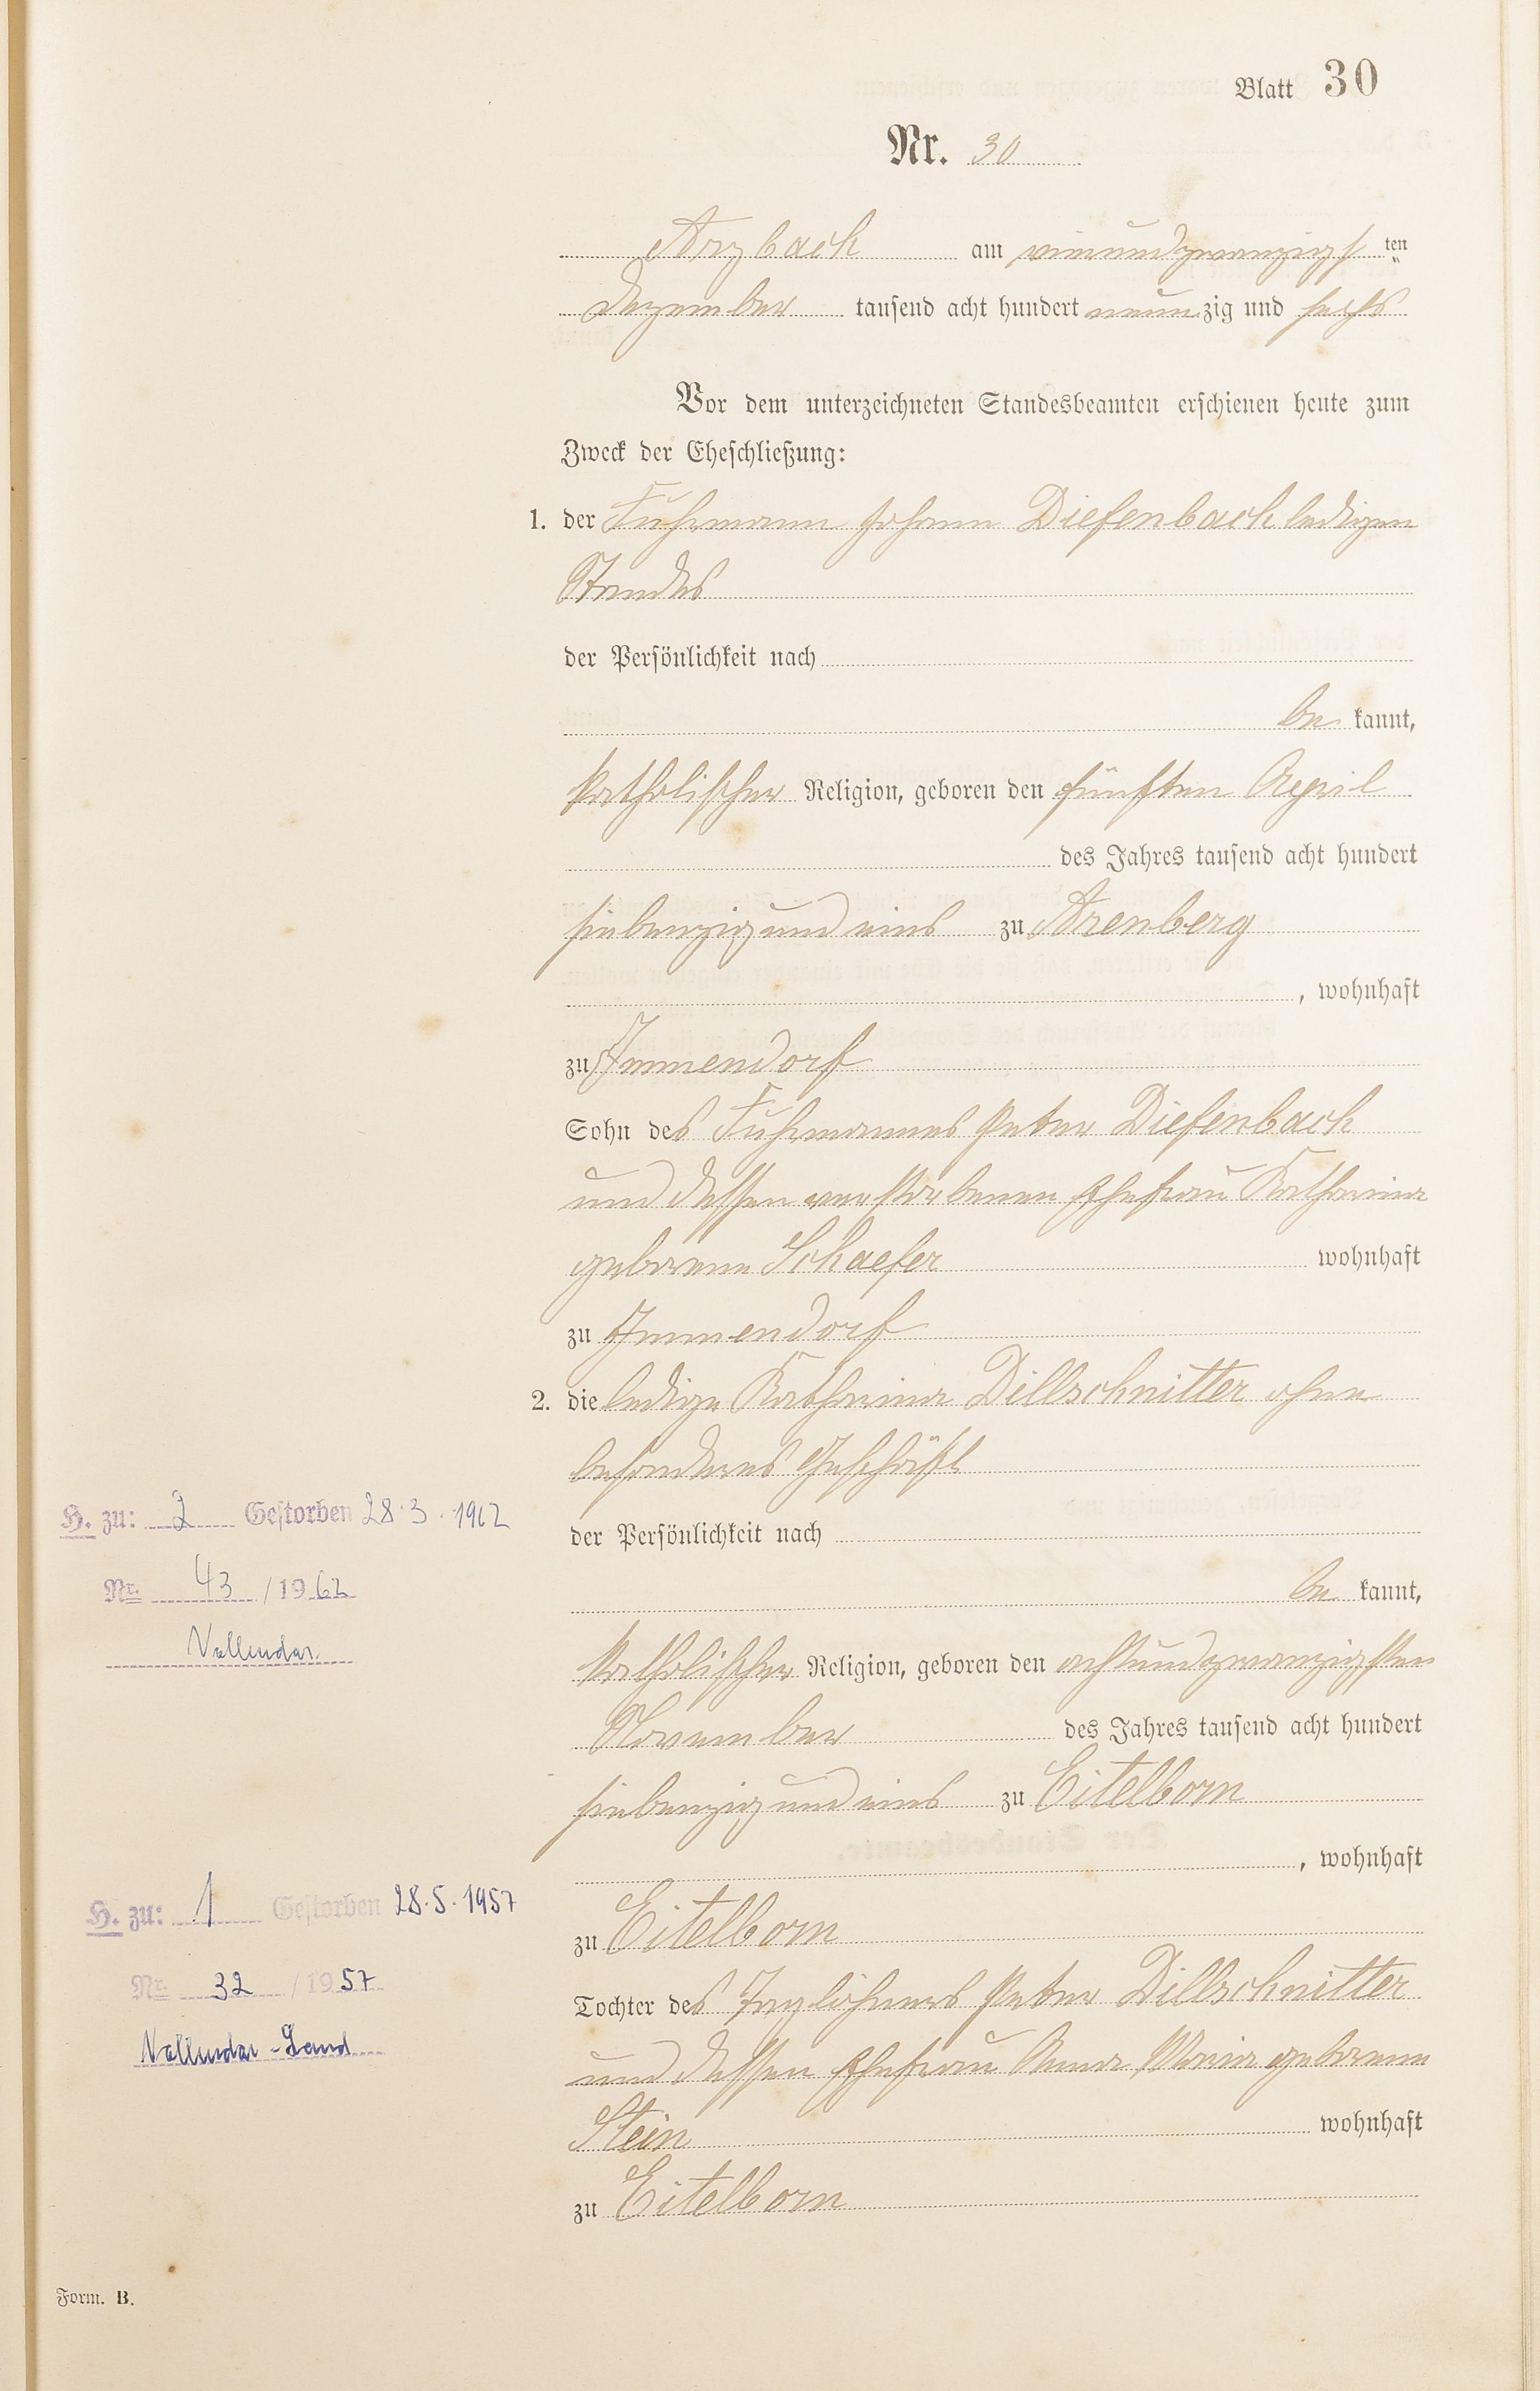 Blatt 30
Nr. 30
Arzbach am einundzwanzigsten
Dezember tausend acht hundert neunzig und sechs
Vor dem unterzeichneten Standesbeamten erschienen heute zum
Zweck der Eheschließung:
1. der Fuhrmann Johann Diefenbach ledigen
Standes
der Persönlichkeit nach
be kannt,
katholischer Religion, geboren den fünften April
des Jahres tausend acht hundert
siebenzig und eins zu Arenberg
, wohnhaft
zu Immendorf
Sohn des Fuhrmannes Peter Diefenbach
und dessen verstorbenen Ehefrau Katharina
geborene Schaefer wohnhaft
zu Immendorf
2. die ledige Katharina Dillschnitter ohne
besonderes Geschäft
H. zu: 2 Gestorben 28.3.1962
der Persönlichkeit nach
Nr. 43 / 1962
be kannt,
Vallendar
katholischer Religion, geboren den achtundzwanzigsten
November des Jahres tausend acht hundert
siebenzig und eins zu Eitelborn
, wohnhaft
H. zu: 1 Gestorben 28.5.1957
zu Eitelborn
Nr. 32 / 1957
Tochter des Taglöhners Peter Dillschnitter
Vallendar-Land
und dessen Ehefrau Anna Maria geborene
Stein wohnhaft
zu Eitelborn
Form. B.